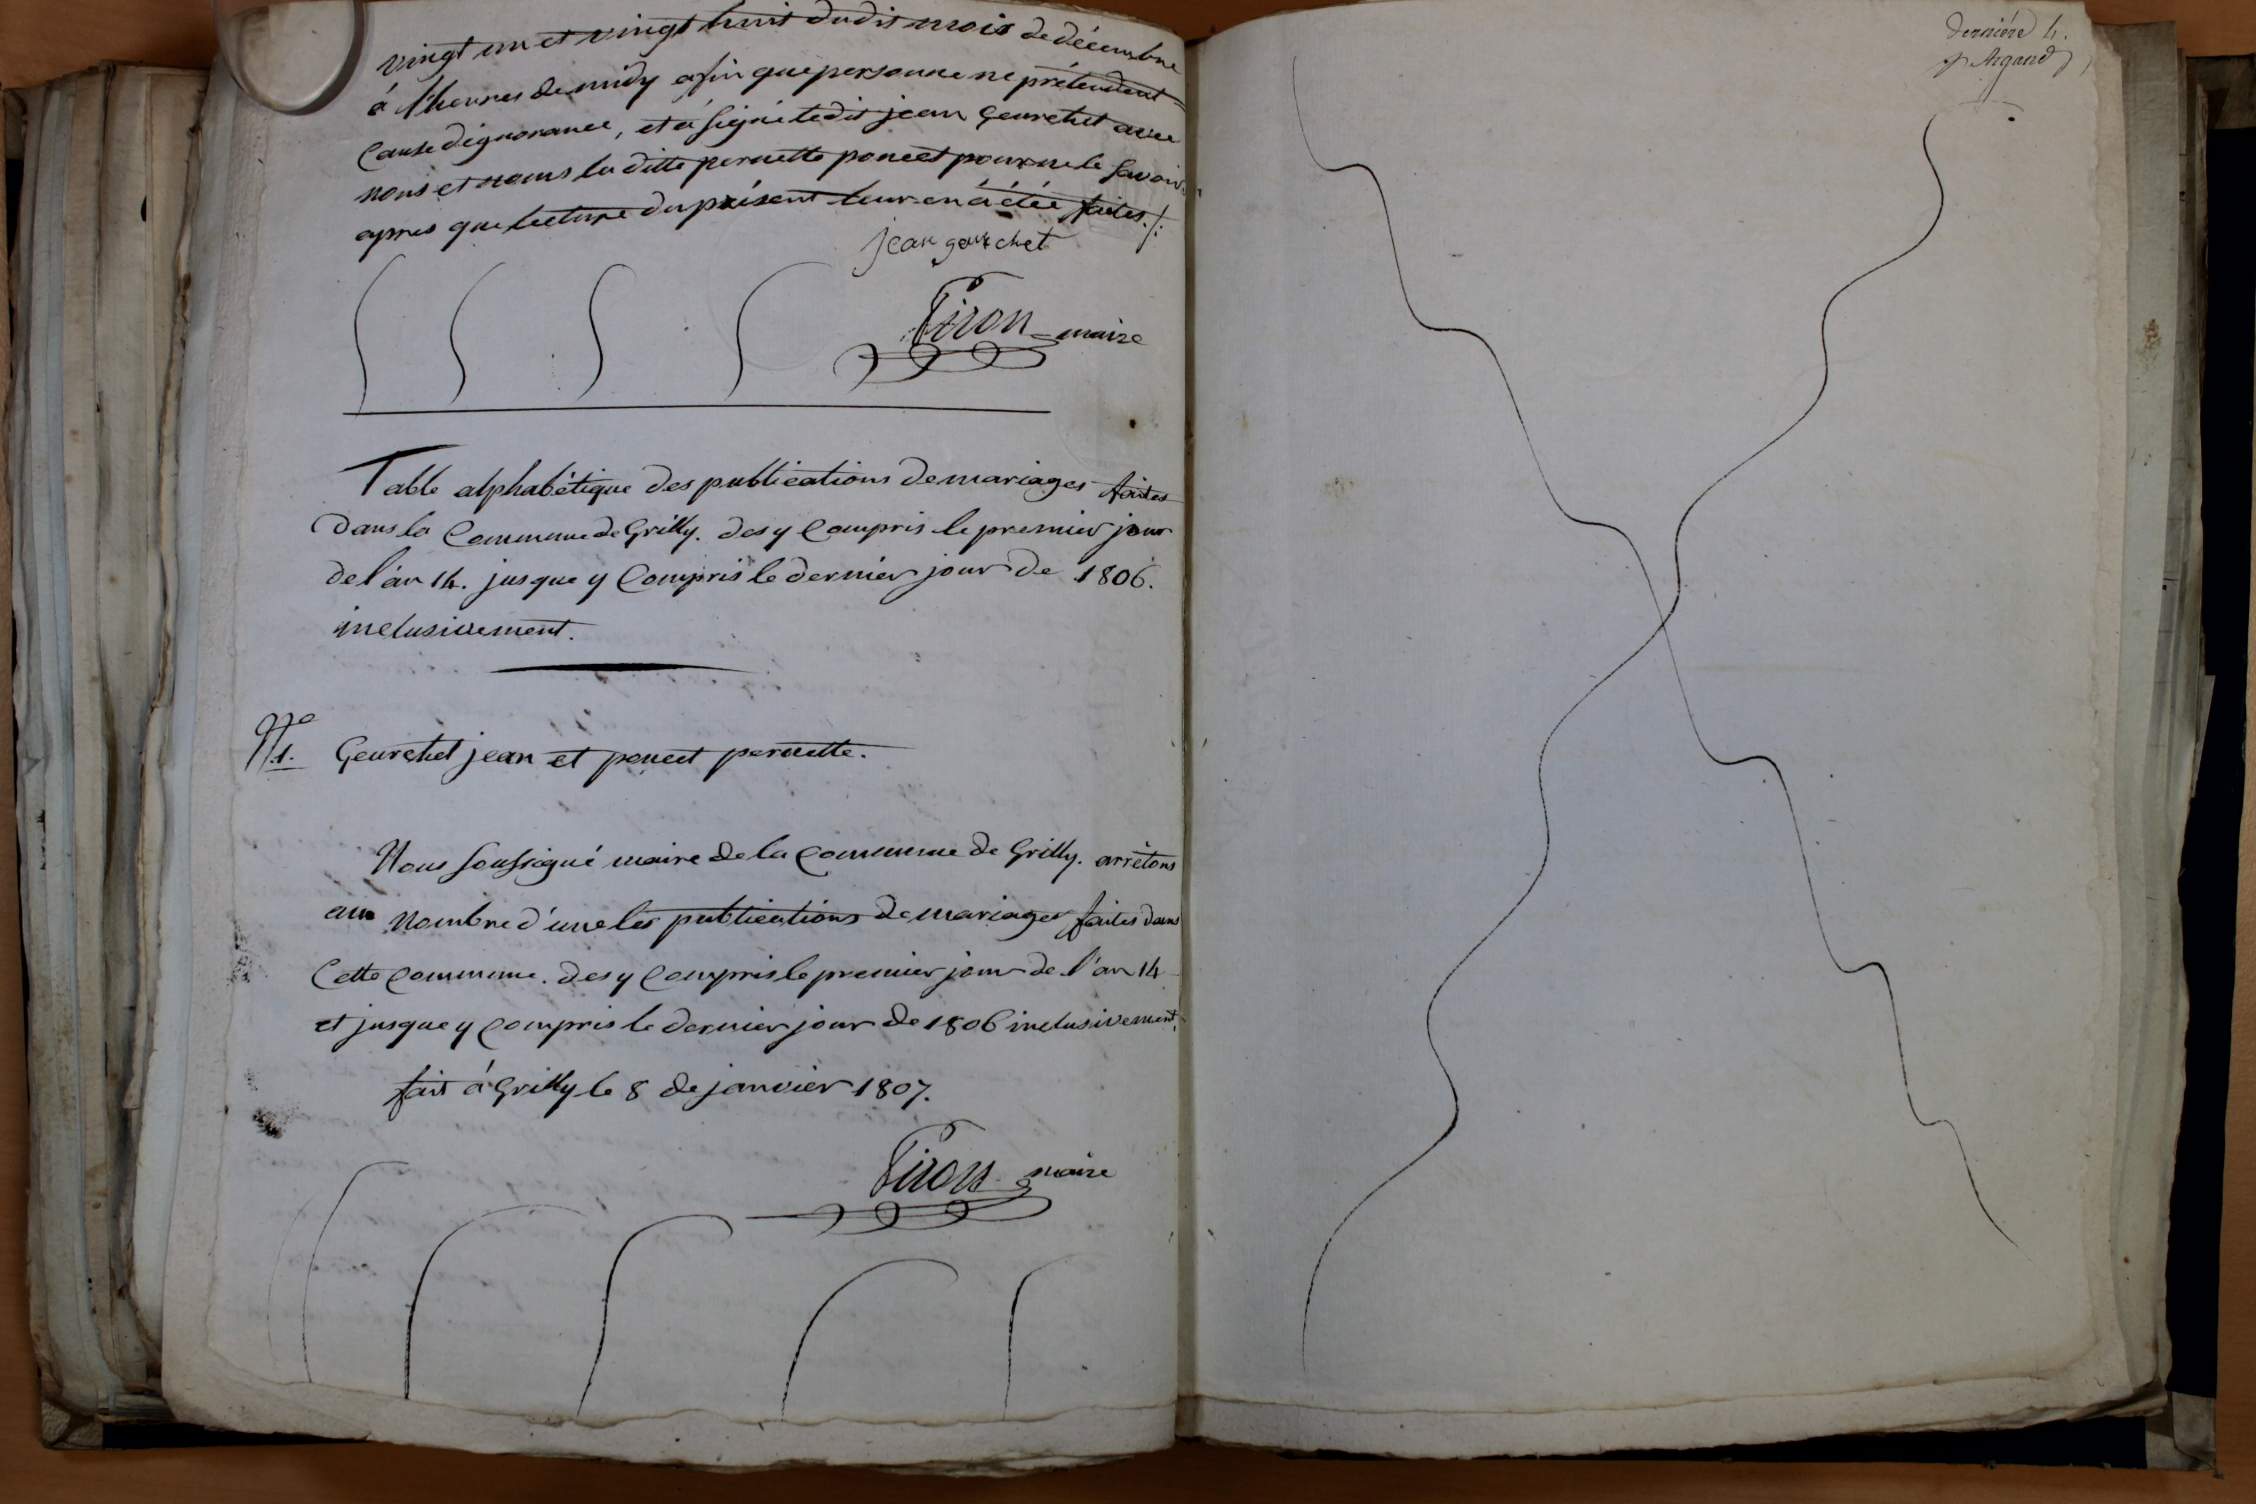 vingt un et vingt huit dudit mois de décembre
á l'heures de midy afin que personne ne prétendent
Cause d'ignorance, et á signé ledit jean Geurchet avec
nous et nomus la ditte pernette poncet pour ne le savoir
apres que lecture du présent leur en á étée faites./:
jean geurchet
Piron maire
Table alphabétique des publications de mariages faites
dans la Commune de Grilly. des y Compris le premier jour
de l'an 14. jusque y Compris le dernier jour de 1806.
inclusivement.
N.º 1. Geurchet jean et poncet pernette.
Nous soussigné maire de la Commune de Grilly. arrêtons
au nombre d'une les publications de mariages faites dans
Cette Commune. des y Compris le premier jour de l'an 14
et jusque y Compris le dernier jour de 1806 inclusivement.
fait á Grilly le 8 de janvier 1807.
Piron maire
derniére h.
Argand